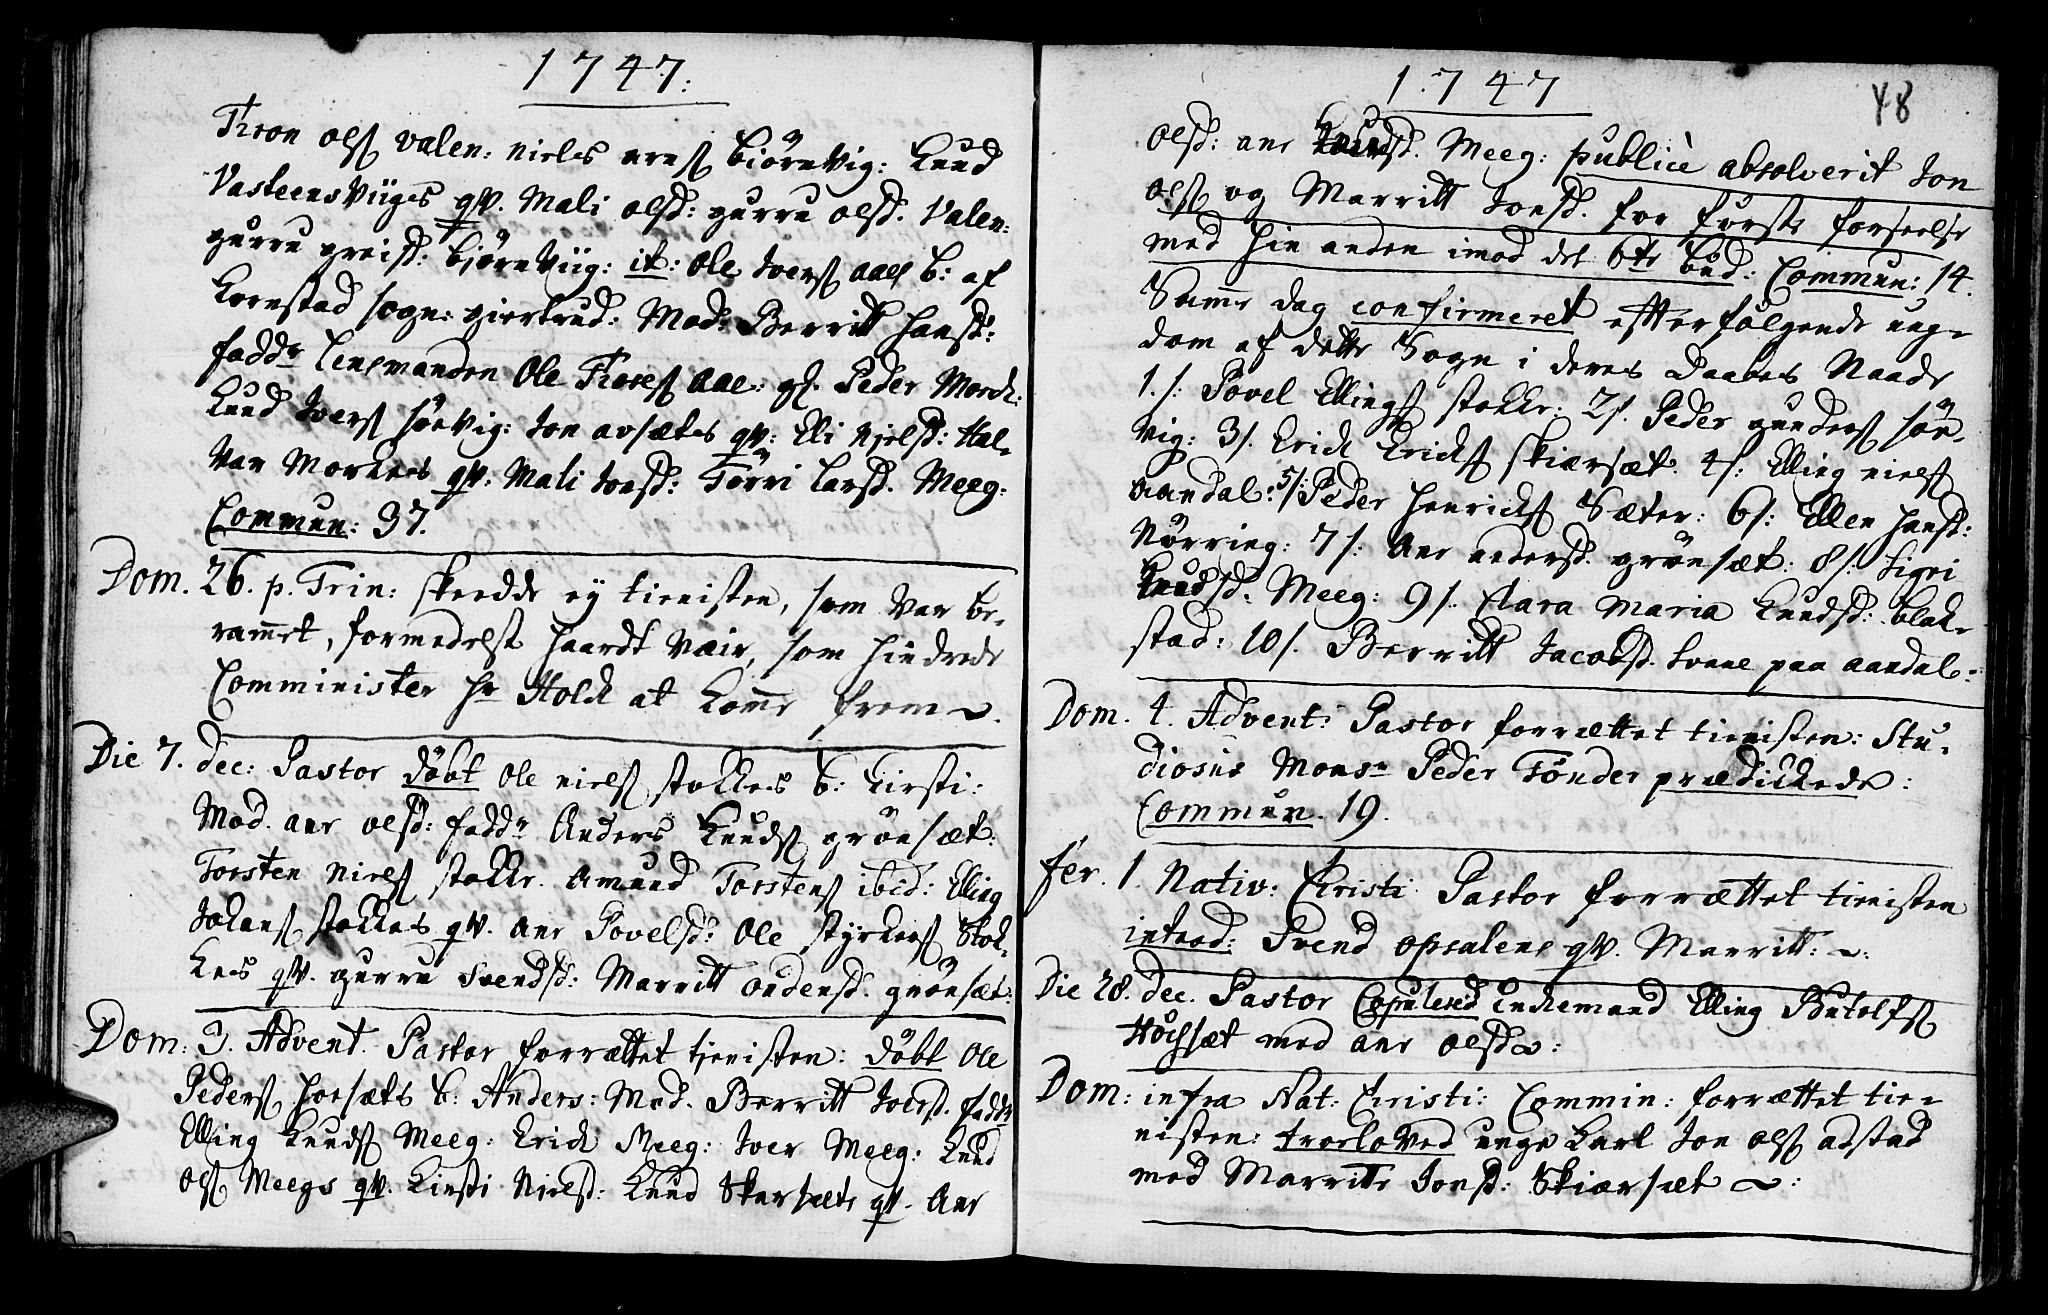 1747.
Thron ols valen: niels arns biörnvig: Knud
Vasteensviiges qv. Mali olsd: gurru olsd. Valen:
gurru greisd: bjørnviig: it: ole Ivers aaes b: af
Kornstad sogn: giertrud: Mod: Berritt Hansd:
fadd lensmanden Ole Thores aae: gl. Peder Morch:
Knud Ivers sörvig: Jon avsætes qv: Eli Njelsd: Hal-
var Morkes qv: Mali Jonsd: Törri larsd. Meeg:
Commun: 37.
Dom. 26. p. Trin: skeedde ey tienisten, som var be-
ramet, formedelst haardt vair, som hindrede
Comminister hr Holck at komme frem.
Die 7. dec: Pastor döbt ole niels stokkes b: kirsti:
Mod. ane olsd: fadd Anders Knuds grönsæt:
Torsten niels stokke. Amund Torstens ibid: Elling
Johans stokkes qv. ane Povelsd: ole styrkers Stok-
kes qv. gurru Svendsd: Marritt oudensd. grönsæt:
Dom: 3. Advent. Pastor forrættet tjenisten: döbt ole
Peders horsæts b: Anders: Mod. Berritt Iversd. fadd
Elling Knuds Meeg: Erick Meeg: Iver Meeg: Knud
ols Meegs qv. Kirsti Njelsd: Knud Skarsæte qv. Ane
1747
48
olsd: ane Knudsd. Meeg: publicè absolverit Jon
ols og Marritt Jonsd. for første forseelse
med hin anden imod det 6te bud: Commun: 14.
Samme dag confirmeret efterfölgende ung-
dom af dette Sogn i deres Daabes Naade
1./: Povel Ellings stokke: 2/. Peder gunders sör-
vig: 3/. Erick Ericks skiærsæt. 4/: Elling niels
aandal: 5/: Peder Henricks Sæter: 6/: Ellen Hansd:
Nörring: 7/: Ane andersd. grönsæt: 8/: Sigri
Knudsd. Meeg: 9/. Clara Maria Knudsd: blak-
stad: 10/. Berritt Jacobsd. tvene paa aandal:
Dom. 4. Advent: Pastor forrættet tienisten: Stu-
diosus Monsr Peder Tönder prædickede:
Commun. 19.
fer. 1. Nativ: Christi Pastor forrættet tienisten
introd: Svend opsalens qv. Marritt:
Die 28. dec. Pastor Copulered Enckemand Elling Butolfs
Höchsæt med ane olsd:
Dom: infra Nat: Christi: Commin: forrættet tie-
nisten: troeloved unge karl Jon ols adstad
med Marritte Jonsd: Skiærsæt: